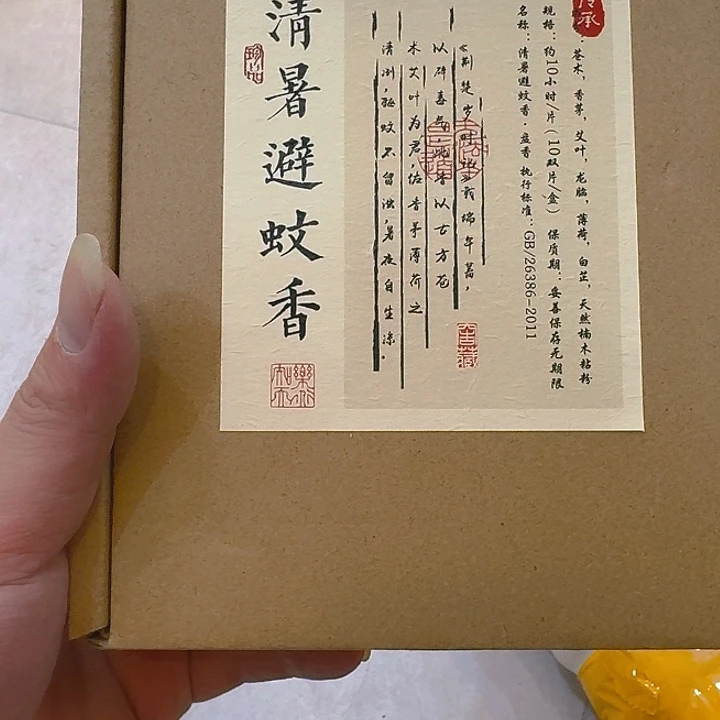 传承
：苍术，香茅，艾叶，龙脑，薄荷，白芷，天然楠木粘粉
规格：约10小时/片（10双片/盒） 保质期：妥善保存无期限
名称：清暑避蚊香·盘香 执行标准：GB/26386-2011
《荆楚岁时记》载端午蓄，
以辟毒气，此香以古方苍
术艾叶为君，佐香茅薄荷之
清冽，驱蚊不留浊，暑夜自生凉。
窖藏
清暑避蚊香
珍品